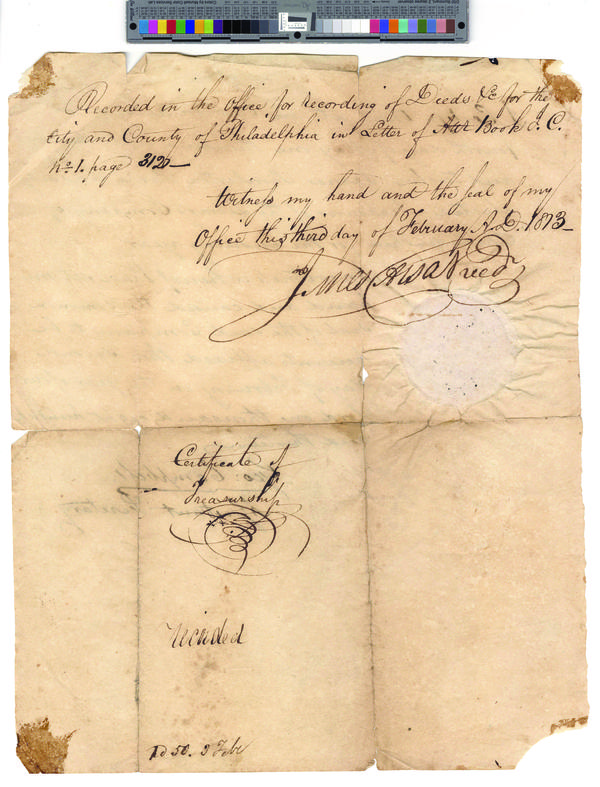 Recorded in the Office for Recording of Deeds &c for the
City and County of Philadelphia in Letter of Att Book C. C.
No 1. page 312
Witness my hand and the seal of my
Office this third day of February A.D. 1873
Reed
Certificate of
Treasurship
50. 3 Feb